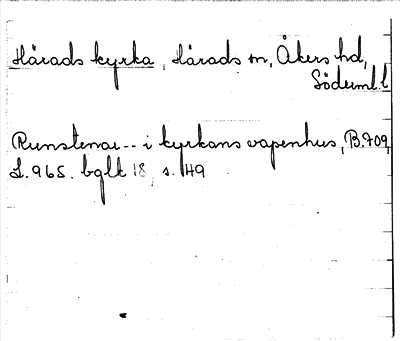 Härads kyrka, Härads sn, Åkers hd,
Söderml. l
Runstenar -- i kyrkans vapenhus, B.709,
L.965. bglk 18, s. 149